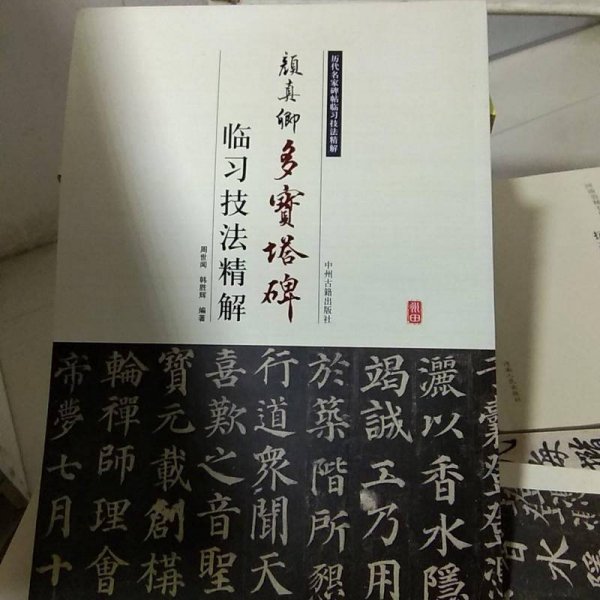 历代名家碑帖临习技法精解
颜真卿多寳塔碑
临习技法精解
周世闻 韩胜辉 编著
中州古籍出版社
灑以香水隱
竭誠工乃用
於築階所懇
行道眾聞天
喜歎之音聖
寳元載創構
輪禪師理會
帝夢七月十